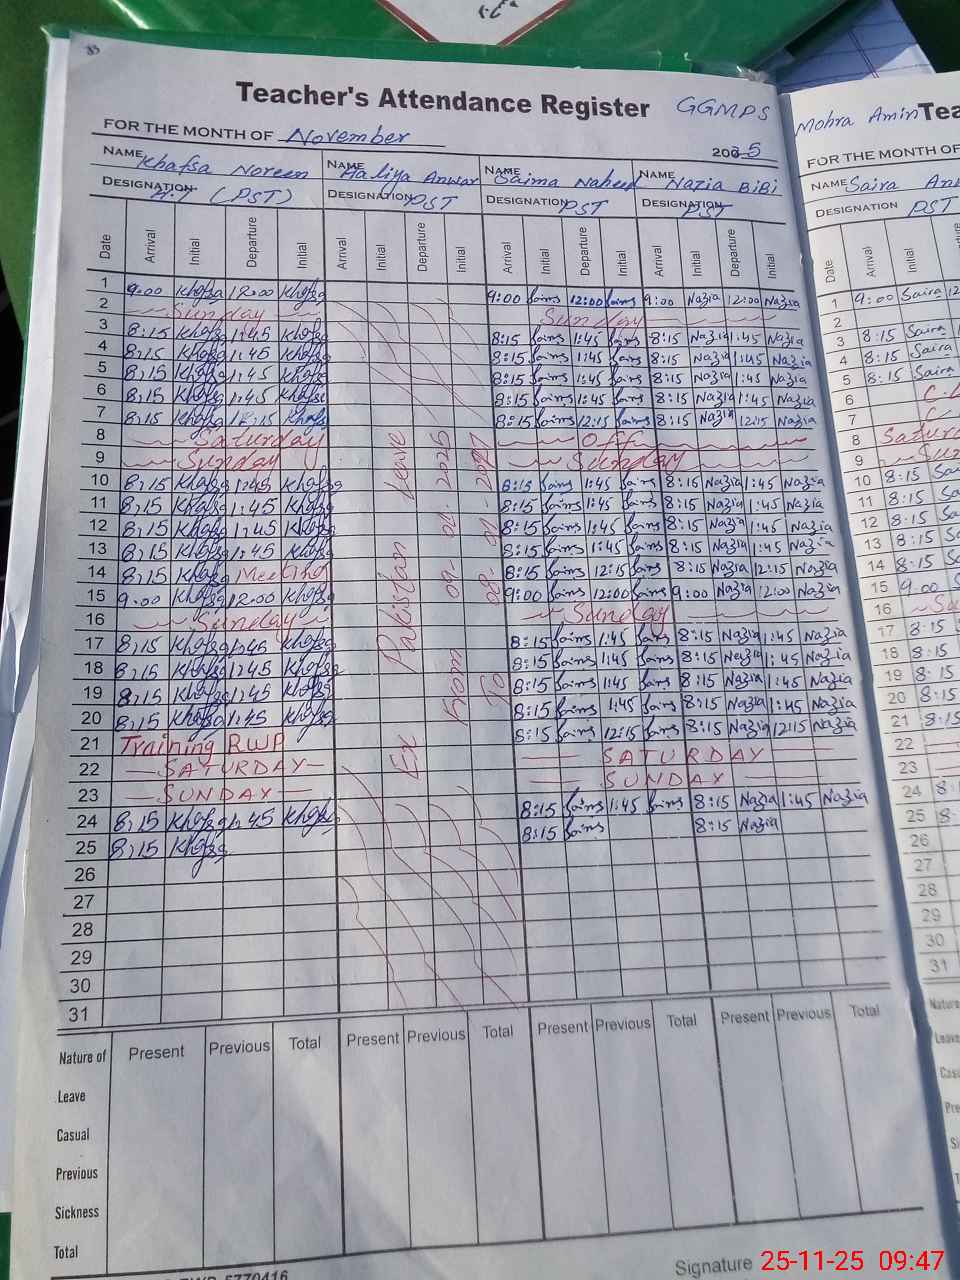 83
Teacher's Attendance Register GGMPS
FOR THE MONTH OF November
2025
NAME Khafsa Noreen NAME Haliya Anwar NAME Saima Naheed NAME Nazia BiBi
DESIGNATION H.T (PST) DESIGNATION PST DESIGNATION PST DESIGNATION PST
Date Arrival Initial Departure Initial Arrival Initial Departure Initial Arrival Initial Departure Initial Arrival Initial Departure Initial
1 9:00 Khafsa 12:00 Khafsa 9:00 Saima 12:00 Saima 9:00 Nazia 12:00 Nazia
2 Sunday Sunday
3 8:15 Khafsa 1:45 Khafsa 8:15 Saima 1:45 Saima 8:15 Nazia 1:45 Nazia
4 8:15 Khafsa 1:45 Khafsa 8:15 Saima 1:45 Saima 8:15 Nazia 1:45 Nazia
5 8:15 Khafsa 1:45 Khafsa 8:15 Saima 1:45 Saima 8:15 Nazia 1:45 Nazia
6 8:15 Khafsa 1:45 Khafsa 8:15 Saima 1:45 Saima 8:15 Nazia 1:45 Nazia
7 8:15 Khafsa 12:15 Khafsa 8:15 Saima 12:15 Saima 8:15 Nazia 12:15 Nazia
8 Saturday Off
9 Sunday Sunday
10 8:15 Khafsa 1:45 Khafsa 8:15 Saima 1:45 Saima 8:15 Nazia 1:45 Nazia
11 8:15 Khafsa 1:45 Khafsa 8:15 Saima 1:45 Saima 8:15 Nazia 1:45 Nazia
12 8:15 Khafsa 1:45 Khafsa 8:15 Saima 1:45 Saima 8:15 Nazia 1:45 Nazia
13 8:15 Khafsa 1:45 Khafsa 8:15 Saima 1:45 Saima 8:15 Nazia 1:45 Nazia
14 8:15 Khafsa Meeting 8:15 Saima 12:15 Saima 8:15 Nazia 12:15 Nazia
15 9:00 Khafsa 12:00 Khafsa 9:00 Saima 12:00 Saima 9:00 Nazia 12:00 Nazia
16 Sunday Sunday
17 8:15 Khafsa 1:45 Khafsa 8:15 Saima 1:45 Saima 8:15 Nazia 1:45 Nazia
18 8:15 Khafsa 1:45 Khafsa 8:15 Saima 1:45 Saima 8:15 Nazia 1:45 Nazia
19 8:15 Khafsa 1:45 Khafsa 8:15 Saima 1:45 Saima 8:15 Nazia 1:45 Nazia
20 8:15 Khafsa 1:45 Khafsa 8:15 Saima 1:45 Saima 8:15 Nazia 1:45 Nazia
21 Training RWP 8:15 Saima 12:15 Saima 8:15 Nazia 12:15 Nazia
22 SATURDAY SATURDAY
23 SUNDAY SUNDAY
24 8:15 Khafsa 1:45 Khafsa 8:15 Saima 1:45 Saima 8:15 Nazia 1:45 Nazia
25 8:15 Khafsa 8:15 Saima 8:15 Nazia
26
27
28
29
30
31
Ex Pakistan Leave
From 09-02-2025
To
Nature of Present Previous Total Present Previous Total Present Previous Total Present Previous Total
Leave
Casual
Previous
Sickness
Total
Signature
Mohra Amin Tea
FOR THE MONTH OF
NAME Saira
DESIGNATION PST
Date Arrival Initial
1 9:00 Saira
2
3 8:15 Saira
4 8:15 Saira
5 8:15 Saira
6
7
8
9
10 8:15
11 8:15
12 8:15
13 8:15
14 8:15
15 9:00
16
17 8:15
18 8:15
19 8:15
20 8:15
21 8:15
22
23
24
25
26
27
28
29
30
31
25-11-25 09:47